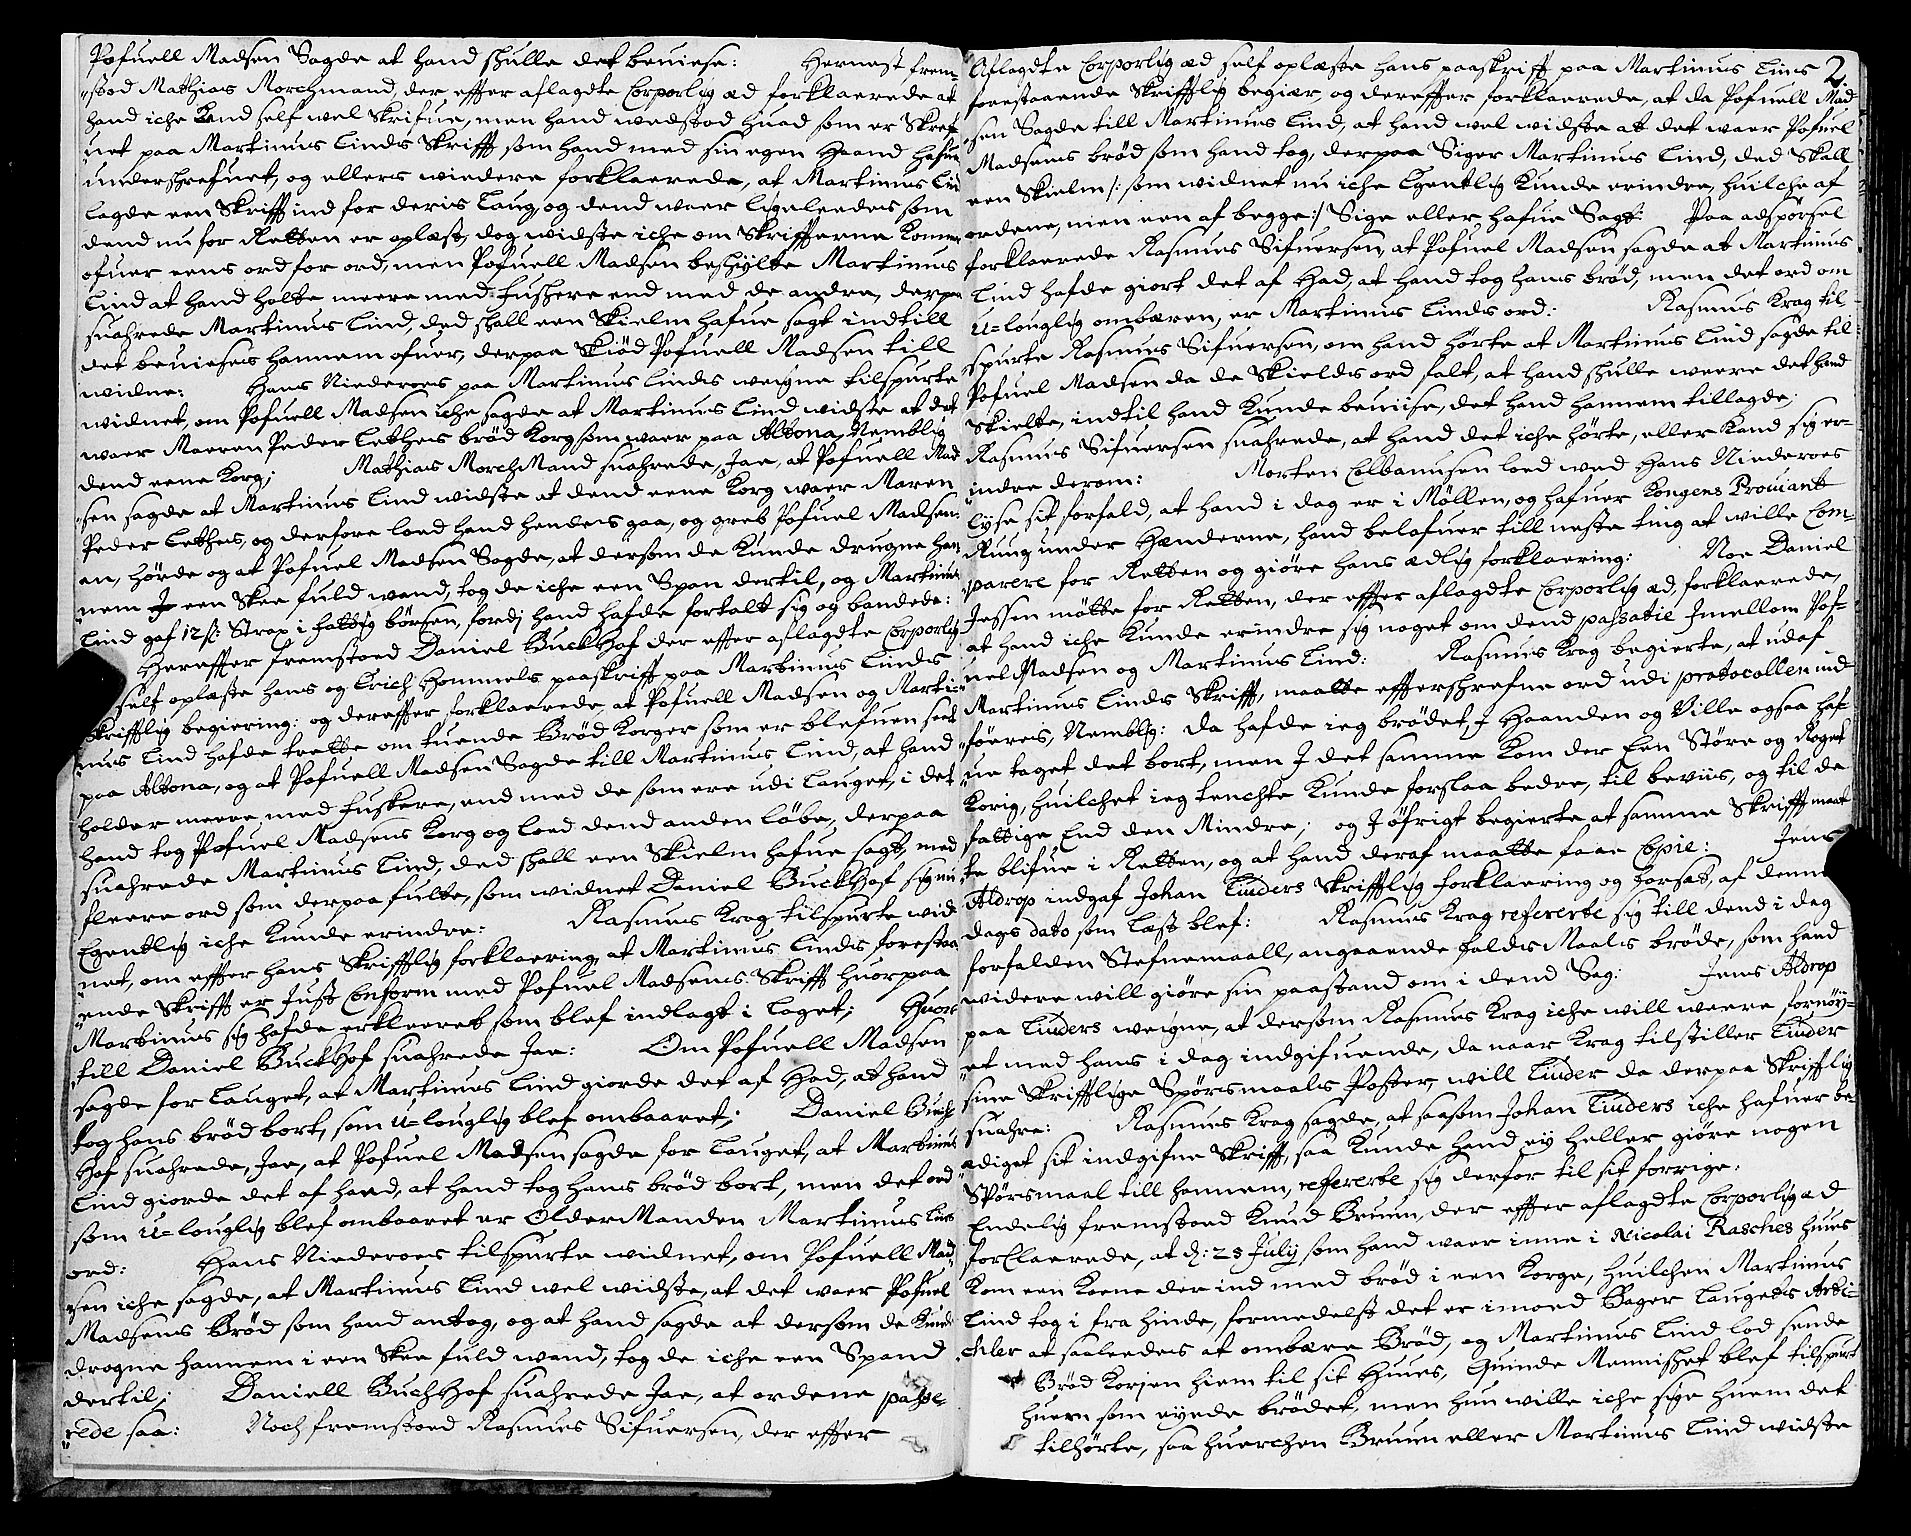 Pofuell Madsen Sagde at hand skulle det beviese: Hernest frem-
stod Mathias Morchmand, der effter aflagdte Corporlig æd forklaerede at
hand iche kand self vel skrifue, men hand vedstod huad som er Skref-
uet paa Martinus Linds Skrifft som hand med sin egen Haand hafuer
underskrefuet, og ellers viedere forklaerede, at Martinus Lind
lagde een Skrifft ind for deris Laug, og dend waer ligeleedes som
dend nu for Retten er oplæst, dog vidste iche om Skriffterne kommer
ofuer eens ord for ord, men Pofuell Madsen beskylte Martinus
Lind at hand holte meere med fuskere end med de andre, derpaa
suahrede Martinus Lind, ded skall een Skielm hafue sagt indtill
det bevieses hannem ofuer, derpaa skiød Pofuell Madsen till
widne: Hans Niederoes paa Martinus Linds weigne tilspurte
widnet, om Pofuell Madsen iche sagde at Martinus Lind vidste at det
waer Maren Peder Lethes brød Korg som waer paa Altona, Nemblig
dend eene Korg; Mathias MorchMand suahrede, Jae, at Pofuell Mad-
sen sagde at Martinus Lind vidste at dend eene Korg waer Maren
Peder Lethes, og derfore loed hand hendes gaa, og greb Pofuel Madsens
en, hørde og at Pofuel Madsen Sagde, at dersom de kunde drugne han-
nem een Skee fuld wand, tog de iche een Span dertil, og Martinus
Lind gaf 12 s: Strax i fattig børsen, fordj hand hafde fortalt sig og bandede:
Hereffter fremstoed Daniel BuckHof der effter aflagdte Corporlig
self oplæste hans og Erich Hommels paaskrifft paa Martinus Linds
Skrifftlig begiering: og dereffter forklaerede, at Pofuell Madsen og Marti-
nus Lind hafde trette om tuende Brød Korger som er blefuen seet
paa Altona, og at Pofuell Madsen Sagde till Martinus Lind, at hand
holder meere med fuskere, end med de som ere udi Lauget, i det
hand tog Pofuel Madsens Korg og loed dend anden løbe, derpaa
suahrede Martinus Lind, ded skall een Skielm hafue sagt, med
fleere ord som derpaa fulte, som widnet Daniel BuckHof sig nu
Egentlig iche kunde erindre: Rasmus Krag tilspurte wid-
net, om effter hans Skrifftlig forklaering, at Martinus Linds forestaa-
ende Skrifft er Just Conform med Pofuel Madsens Skrifft huorpaa
Martinus sig hafde erklaeret som blef indlagt i Laget; Huor-
till Daniel BuckHof suahrede Jae: Om Pofuell Madsen
sagde for Lauget, at Martinus Lind giorde det af Had, at hand
tog hans brød bort, som U-louglig blef ombaaret; Daniel Buch-
Hof suahrede, Jae, at Pofuel Madsen sagde for Lauget, at Martinus
Lind giorde det af haed, at hand tog hans brød bort, men det ord
som U-louglig blef ombaaret er OlderManden Martinus Linds
ord: Hans Niederoes tilspurte widnet, om Pofuell Mad-
sen iche sagde, at Martinus Lind vel vidste, at det waer Pofuel
Madsens Brød som hand antog, og at hand sagde at dersom de kunde
drogne hannem i een Skee fuld wand, tog de iche een Spand
dertil; Daniell BuchHof suahrede Jae, at ordene passe-
rede saa: Noch fremstoed Rasmus Sifuersen, der effter
2.
Aflagdte Corporlig æd self oplæste hans paaskrifft paa Martinus Lins
forestaaende Skrifftlig begiær, og dereffter forklaerede, at da Pofuell Mad-
sen Sagde till Martinus Lind, at hand vel vidste at det waer Pofuel
Madsens brød som hand tog, derpaa Siger Martinus Lind, ded Skall
een Skielm /: som widnet nu iche Egentlig kunde erindre, huilche af
ordene, men een af begge :/ Sige eller hafue Sagt: Paa adspørsel
forklaerede Rasmus Sifuersen, at Pofuel Madsen sagde at Martinus
Lind hafde giort det af Had, at hand tog hans brød, men det ord om
U-louglig ombæren, er Martinus Linds ord: Rasmus Krag til-
spurte Rasmus Sifuersen, om hand hørte at Martinus Lind sagde til
Pofuel Madsen da de Skields ord falt, at hand skulle weere det hand
Skielte, indtil hand kunde beviise, det hand hannem tillagde;
Rasmus Sifuersen suahrede, at hand det iche hørte, eller kand sig er-
indre derom: Morten Colbanusen loed ved Hans Niederoes
lyse sit forfald, at hand i dag er i Møllen, og hafuer Kongens Proviant
Ruug under Hænderne, hand belofuer till neste ting at wille Com-
parere for Retten og giøre hans ædlig forklaering: Noe Daniel
Jessen møtte for Retten, der effter aflagdte Corporlig æd, forklaerede,
at hand iche kunde erindre sig noget om dend passatie Jmellom Pof-
uel Madsen og Martinus Lind: Rasmus Krag begierte, at udaf
Martinus Linds Skrifft, maatte effterskrefne ord udi protocollen ind-
føeres, Nemblig: da hafde ieg brødet J Haanden og Ville ogsaa haf-
ue taget det bort, men J det samme kom der Een Støre og Roget
Korig, huilchet ieg tenchte kunde forslaa bedre, til beviis, og til de
fattige End den Mindre; og J øfrigt begierte at samme Skrifft maat-
te blifue i Retten, og at hand deraf maatte faae Copie: Jens
Aldrop indgaf Johan Tiuders Skrifftlig forklaering og forsæt, af denne
dags dato som læst blef: Rasmus Krag refererte sig till dend i dag
forfalden Stefnemaall, angaaende Faldis Maals brøde, som hand
widere will giøre sin paastand om i dend Sag: Jens Aldrop
paa Tiuders weigne, at dersom Rasmus Krag iche will weere fornøy-
et med hans i dag indgifuende, da naar Krag tilstiller Tiuder
sine Skrifftlige Spørsmaals Poster, will Tiuder da derpaa Skrifftlig
suahre: Rasmus Krag sagde, at saasom Johan Tiuders iche hafuer be-
ædiget sit indgifne Skrifft, saa kunde hand ey heller giøre nogen
Spørsmaal till hannem, refererte sig derfor til sit forrige:
Endelig fremstoed Knud Bruun, der effter aflagdte Corporlig æd
forklaerede, at d: 25 July, som hand waer inne i Nicolai Rasches huus
kom een Kone der ind med brød i een Korge, huilchen Martinus
Lind tog i fra hinde, formedelst det er imoed Bager Laugets Arti-
chler at saaleedes at ombære Brød, og Martinus Lind lod sende
Brød Korjen hiem til sit Huus, Quinde Mennisket blef tilspurt
huem som eyede brødet, men hun wille iche sige huem det
tilhørte, saa huerchen Bruun eller Martinus Lind widste